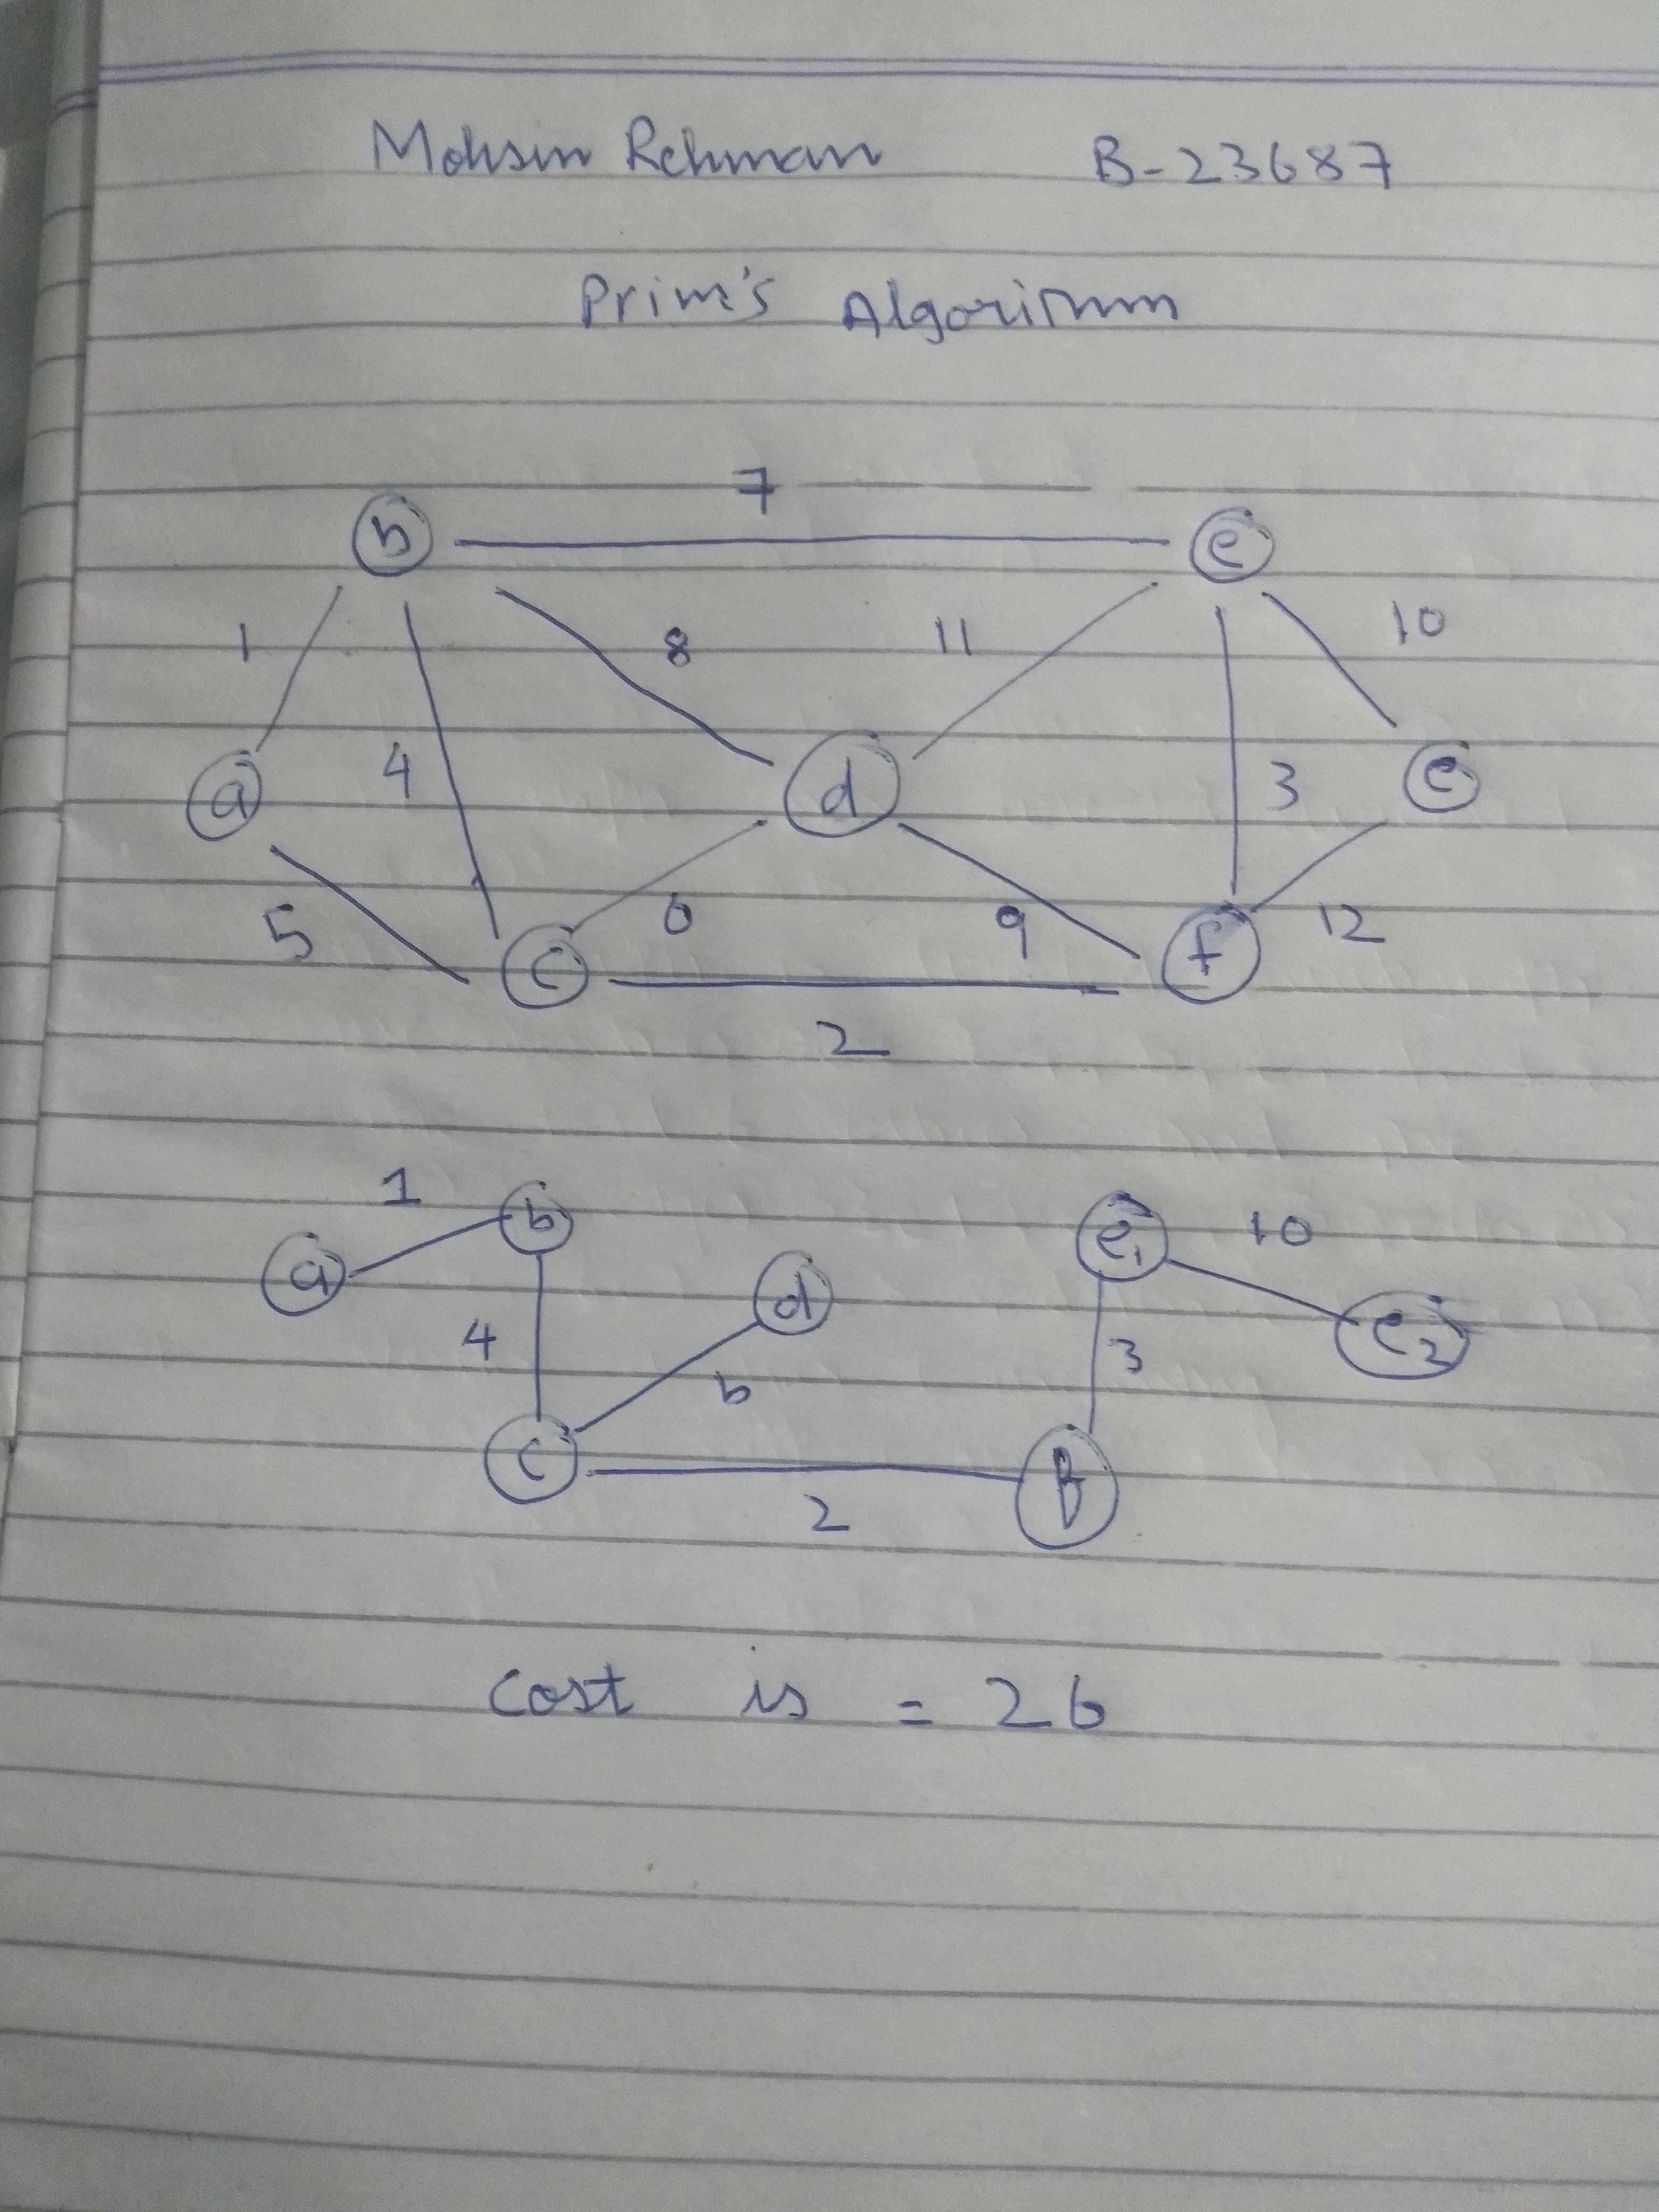 Mohsin Rehman B-23687
Prim's Algorithm
7
b e
1 8 11 10
a 4 d 3 e
5 6 9 12
c f
2
1 b e1 10
a d e2
4 6 3
c f
2
Cost is = 26